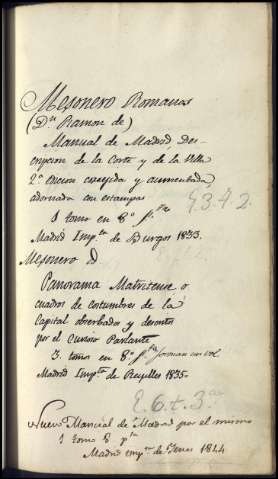 Mesonero Romanos
(Dn Ramon de)
Manual de Madrid, Des-
cripcion de la Corte y de la Villa
2ª edicion corregida y aumentada,
adornada con estampas
4342.
1 tomo en 8º
Madrid Impta de Burgos 1833.
Mesonero
Panorama Matritense o
cuadros de costumbres de la
Capital obserbados y descritos
por el Curioso Parlante
3 tomos en 8º forman un vol
Madrid Impta de Repulles 1835.
E. 6. t. 3
Nuevo Manual de Madrid por el mismo
1 tomo 8º
Madrid impta de Yenes 1844